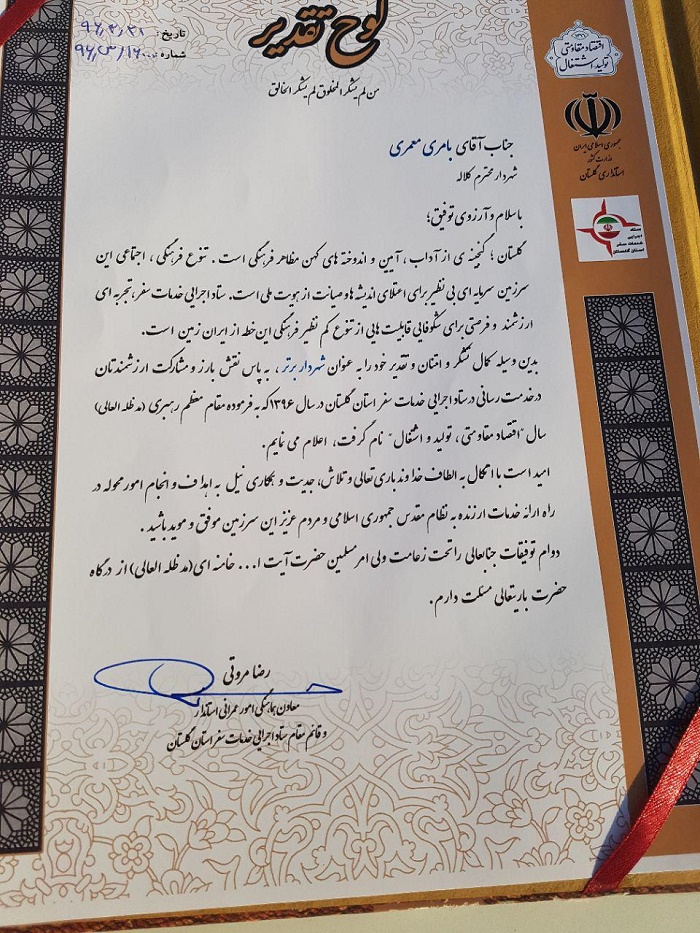 لوح تقدیر
تاریخ: ۹۶,۳,۳۱
شماره:
من لم یشکر المخلوق لم یشکر الخالق
اقتصاد مقاومتی
تولید، اشتغال
جمهوری اسلامی ایران
وزارت کشور
استانداری گلستان
ستاد
اجرایی
خدمات سفر
استان گلستان
جناب آقای بامری معمری
شهردار محترم کلاله
با سلام و آرزوی توفیق؛
گلستان؛ گنجینه ی از آداب، آیین و اندوخته های کهن مظاهر فرهنگی است. تنوع فرهنگی، اجتماعی این
سرزمین سرمایه ای بی نظیر برای اعتلای اندیشه ها و صیانت از هویت ملی است. ستاد اجرایی خدمات سفر، تجربه ای
ارزشمند و فرصتی برای شکوفائی قابلیت هایی از تنوع کم نظیر فرهنگی این خطه از ایران زمین است.
بدین وسیله کمال تشکر و امتنان و تقدیر خود را به عنوان شهردار برتر، به پاس نقش بارز و مشارکت ارزشمندتان
در خدمت رسانی در ستاد اجرایی خدمات سفر استان گلستان در سال ۱۳۹۶ که به فرموده مقام معظم رهبری (مدظله العالی)
سال "اقتصاد مقاومتی، تولید و اشتغال" نام گرفت، اعلام می نمایم.
امید است با اتکال به الطاف خداوند باری تعالی و تلاش، جدیت و همکاری نیل به اهداف و انجام امور محوله در
راه ارائه خدمات ارزنده به نظام مقدس جمهوری اسلامی و مردم عزیز این سرزمین موفق و موید باشید.
دوام توفیقات جنابعالی را تحت زعامت ولی امر مسلمین حضرت آیت ا... خامنه ای (مدظله العالی) از درگاه
حضرت باریتعالی مسئلت دارم.
رضا مروتی
معاون هماهنگی امور عمرانی استاندار
و قائم مقام ستاد اجرایی خدمات سفر استان گلستان